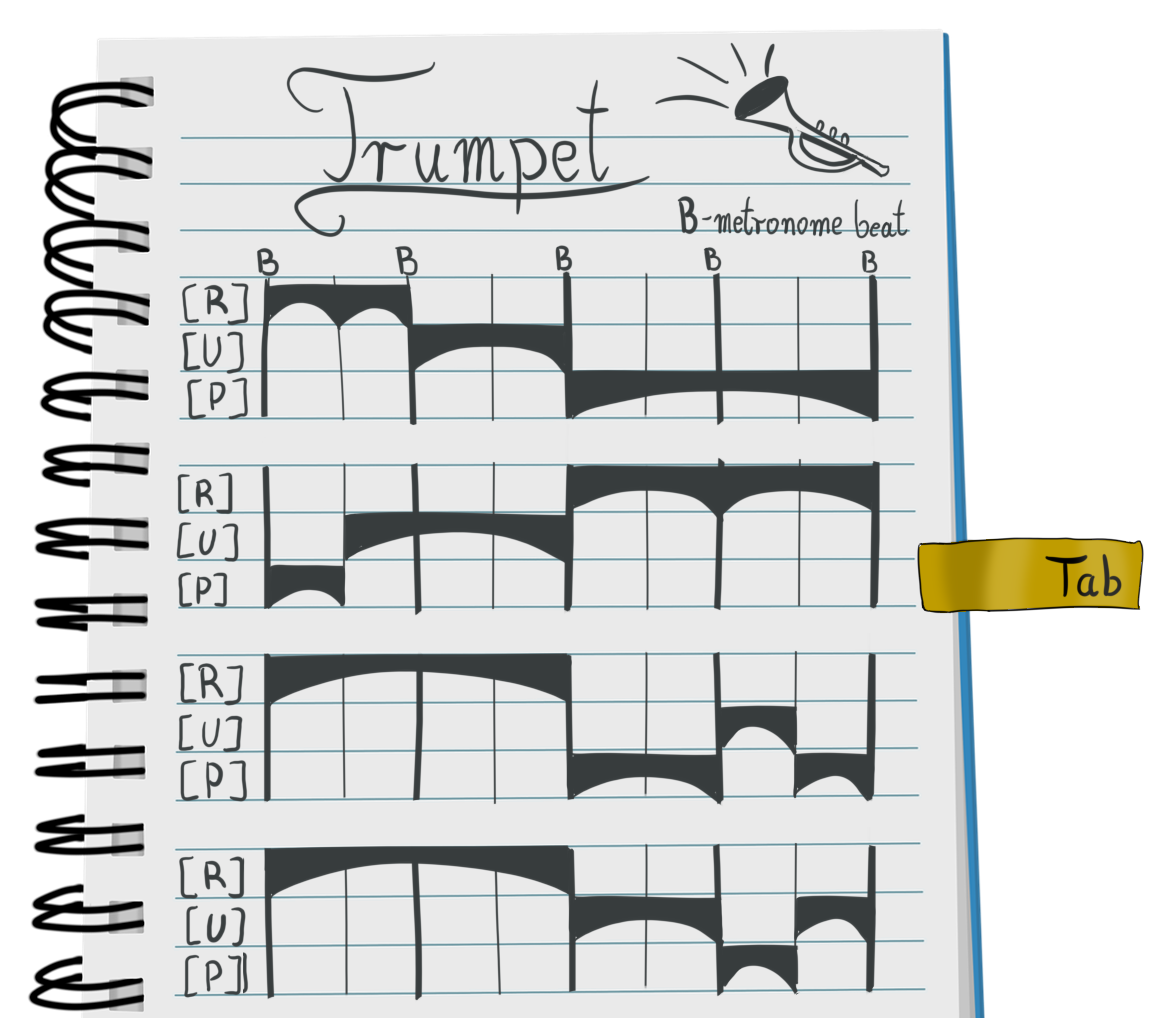 Trumpet
B-metronome beat
B B B B B
[R]
[U]
[P]
[R]
[U]
[P]
Tab
[R]
[U]
[P]
[R]
[U]
[P]